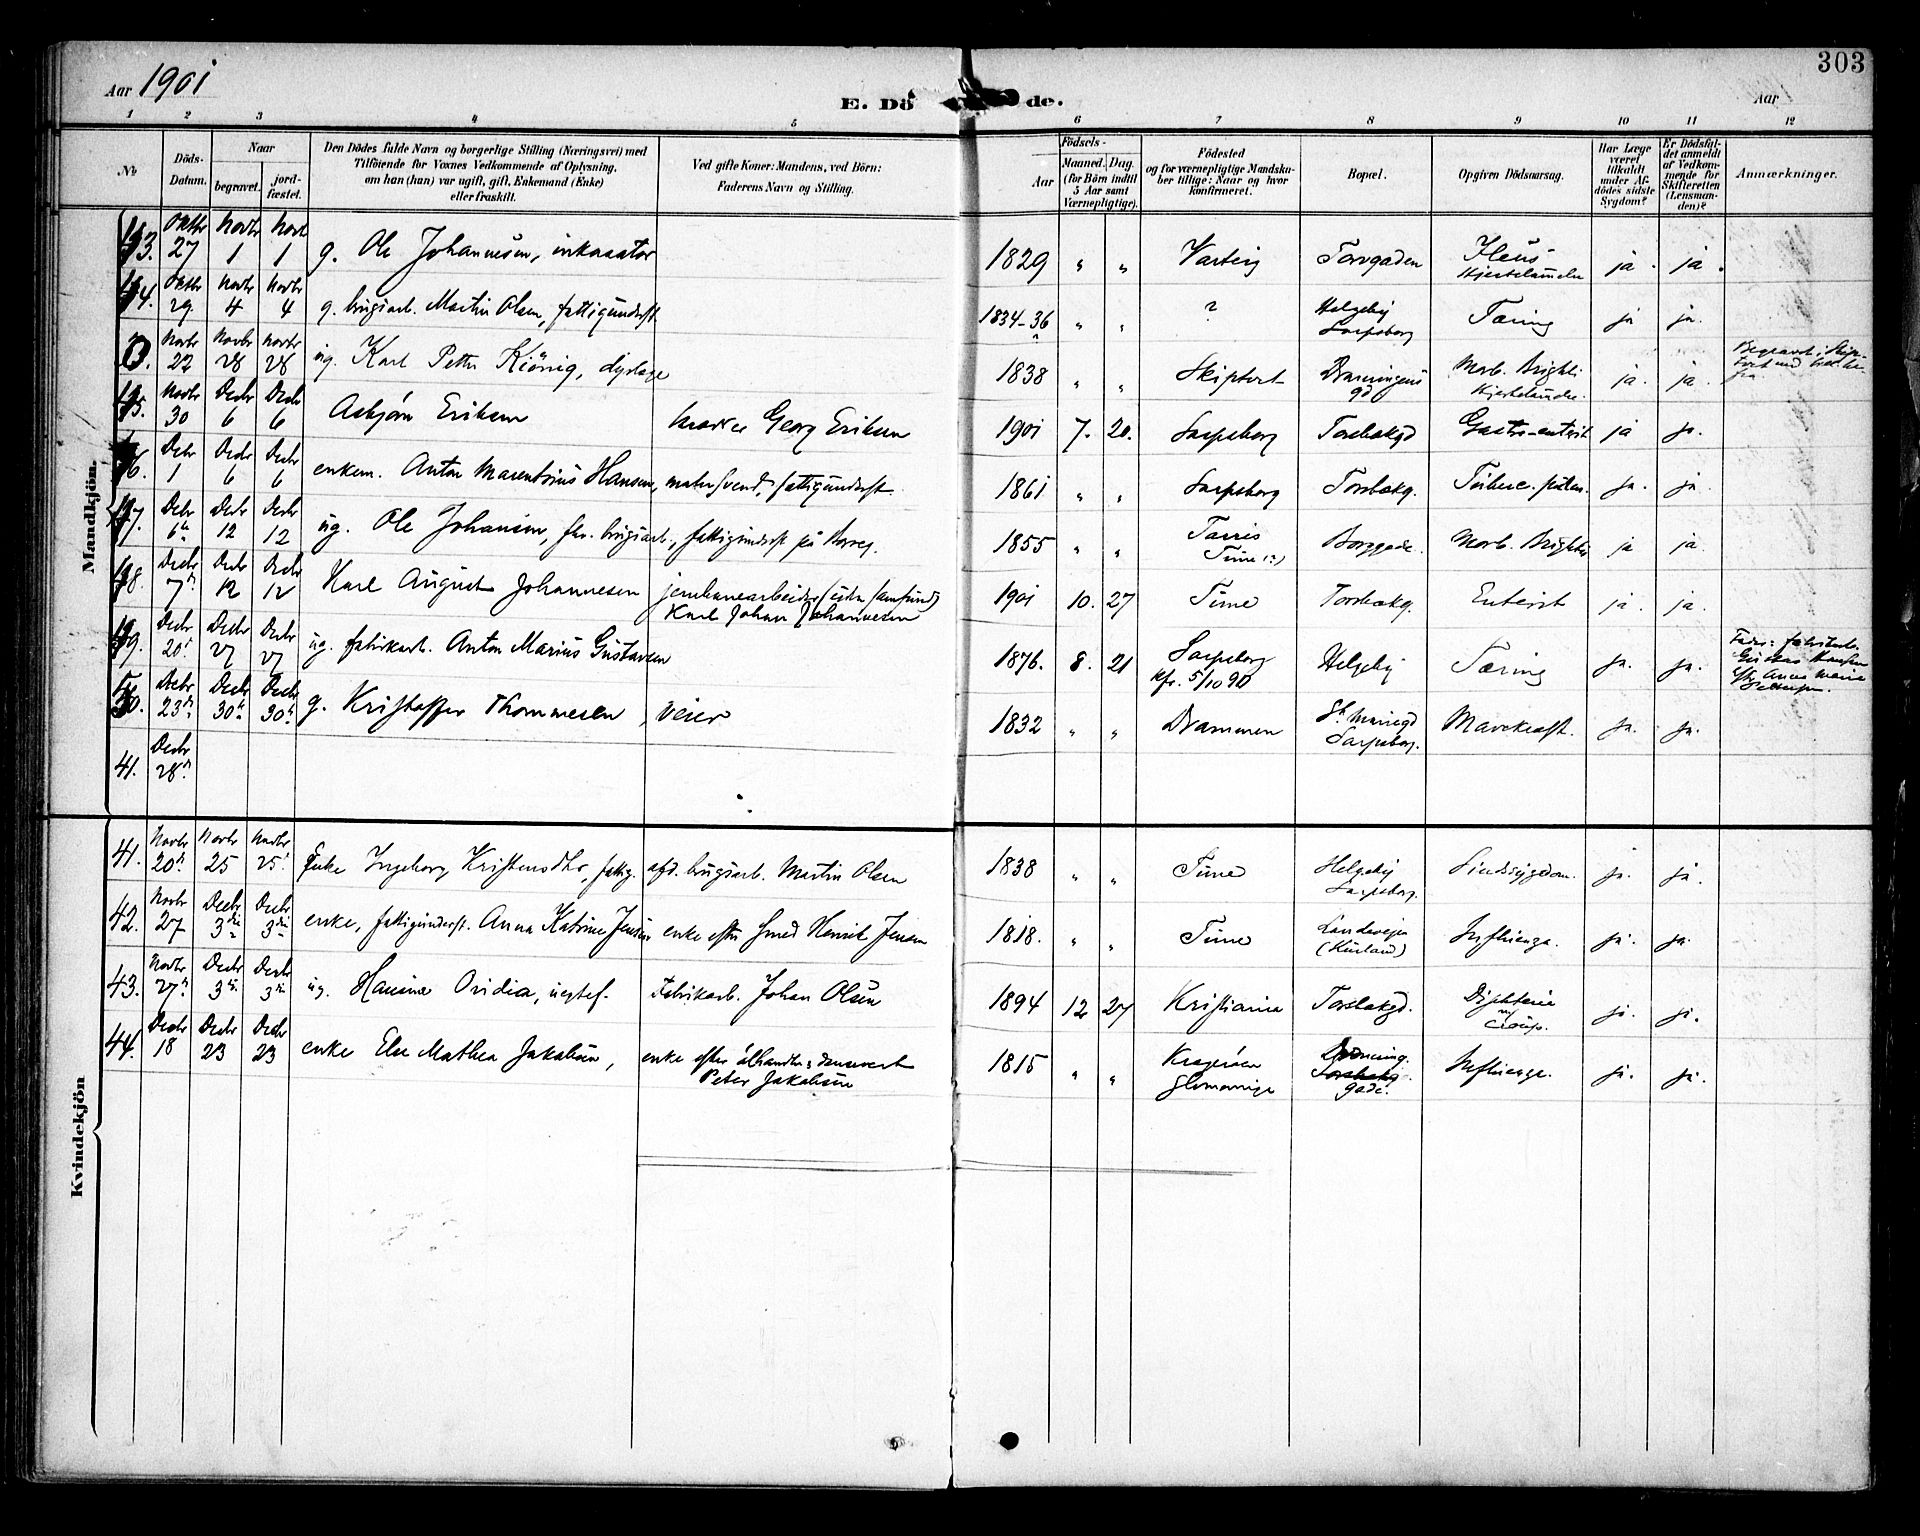 303
Aar 1901
E. Dö de.
Aar
1 2 3 4 5 6 7 8 9 10 11 12
No
Döds-Datum.
Naar
begravet.
jord-fæstet.
Den Dödes fulde Navn og borgerlige Stilling (Næringsvei) med
Tilföiende for Voxnes Vedkommende af Oplysning,
om han (hun) var ugift, gift, Enkemand (Enke)
eller fraskilt.
Ved gifte Koner: Mandens, ved Börn:
Faderens Navn og Stilling.
Födsels-
Aar
Maaned. Dag.
(for Börn indtil
5 Aar samt
Værnepligtige).
Födested
og for værnepligtige Mandsku-
ber tillige: Naar og hvor
konfirmeret.
Bopæl.
Opgiven Dödsaarsag.
Har Læge
været
tilkaldt
under Af-
dödes sidste
Sygdom?
Er Dödsfal-
det anmeldt
af Vedkom-
mende for
Skifteretten
(Lensman-
den)?
Anmærkninger.
Mandkjön.
Oktbr 27 Novbr 1 Novb 1 g. Ole Johannesen, inkassator 1829 " " Varteig Torvgaden Ileus ja. ja.
Oktbr 29. Novbr 4 Novbr 4 g. brugsarb. Martin Olsen, fattigunderst. 1834-36 " " ? Helgeby Sarpsborg Tæring ja ja.
Novbr 22 Novbr 28 Novbr 28 ug. Karl Petter 1838 " " Skiptvet Morb. Brighti ja. ja.
Novbr 30 Decbr 6 Decbr 6 Asbjørn Eriksen Georg Eriksen 1901 7. 20. Sarpsborg Torsbækgd Gastro-enterit ja ja.
Decbr 1 Decbr 6 Decbr 6 enkem. Anton Hansen, malersvend, fattigunderst. 1861 " " Sarpsborg Torsbækg. ja. ja
Decbr 6te Decbr 12 Decbr 12 ug. Ole Johansen, brugsarb., fattigunderst på 1855 " " Tune (?) Borggade. Morb. Brighti ja ja.
Decbr 7de Decbr 12 Decbr 12 Karl August Johannesen jernbanearbeider
Karl Johan Johannesen 1901 10. 27 Tune Torsbækg. Enterit ja. ja.
Decbr 20 Decbr 27 Decbr 27 ug. fabrikarb. Anton Marius Gustavsen 1876. 8. 21 Sarpsborg
kfr. 5/10 90 Helgeby Tæring ja. ja. Fader: fabrikarb.
Decbr 23de Decbr 30te Decbr 30te g. Kristoffer Thommesen, veier 1832 " " Drammen St. Mariegd Sarpsborg. Marekraft. ja. ja.
41. Decbr 28de
Kvindekjön
41. Novbr 20de Novbr 25 Novbr 25 Enke Ingeborg Kristensdtr, fattig. afd. brugsarb. Martin Olsen 1838 " " Tune Helgeby Sarpsborg. Sindssygdom. ja. ja.
42. Novbr 27 Decbr 3die Decbr 3die enke, fattigunderst. Anna Katrine Jensen enke efter smed Henrik Jensen 1818. " " Tune Landeveien
(Kurland) Influenza. ja. ja.
43. Novbr 27de Decbr 3die Decbr 3die ug. Hansine Ovidia, uegtef. Fabrikarb. Johan Olsen 1894 12 27 Kristiania Torsbækgd. Difterie
Croup. ja. ja.
44. Decbr 18 Decbr 23 Decbr 23 enke Else Mathea Jakobsen, enke efter ølhandler
Peter Jakobsen 1815 " " Dronning.
gade. Influenza. ja. ja.